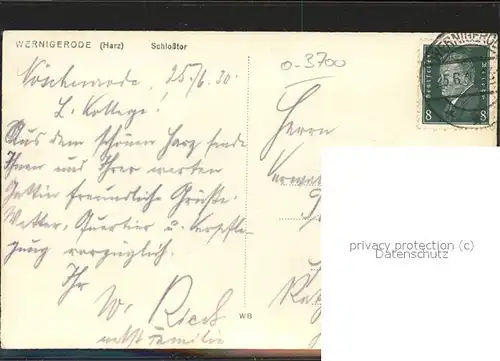 WERNIGERODE (Harz) Schloßtor
Nöschenrode, 25/6.30.
L. Kollege!
Aus dem schönen Harz sende
Ihnen und Ihrer werten
Gattin freundliche Grüße.
Wetter, Quartier u. Verpfle-
gung vorzüglich.
Ihr
W. Rieck
nebst Familie
WB
0-3700
Herrn
DEUTSCHES REICH
8 8
privacy protection (c)
Datenschutz